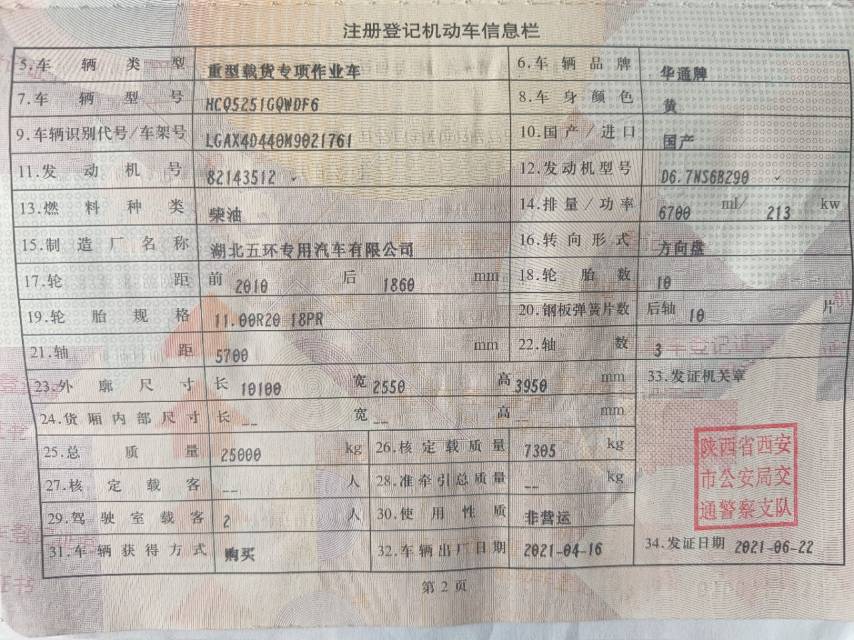 注册登记机动车信息栏
5.车辆类型 重型载货专项作业车 6.车辆品牌 华通牌
7.车辆型号 HCQ5251GQWDF6 8.车身颜色 黄
9.车辆识别代号/车架号 LGAX4D440M9021761 10.国产/进口 国产
11.发动机号 82143512 12.发动机型号 D6.7NS6B290
13.燃料种类 柴油 14.排量/功率 6700 ml/ 213 kw
15.制造厂名称 湖北五环专用汽车有限公司 16.转向形式 方向盘
17.轮距 前 2010 后 1860 mm 18.轮胎数 10
19.轮胎规格 11.00R20 18PR 20.钢板弹簧片数 后轴 10 片
21.轴距 5700 mm 22.轴数 3
23.外廓尺寸 长 10100 宽 2550 高 3950 mm 33.发证机关章
24.货厢内部尺寸 长 -- 宽 -- 高 -- mm
25.总质量 25000 kg 26.核定载质量 7305 kg
27.核定载客 -- 人 28.准牵引总质量 -- kg
29.驾驶室载客 2 人 30.使用性质 非营运
陕西省西安
市公安局交
通警察支队
31.车辆获得方式 购买 32.车辆出厂日期 2021-04-16 34.发证日期 2021-06-22
第2页